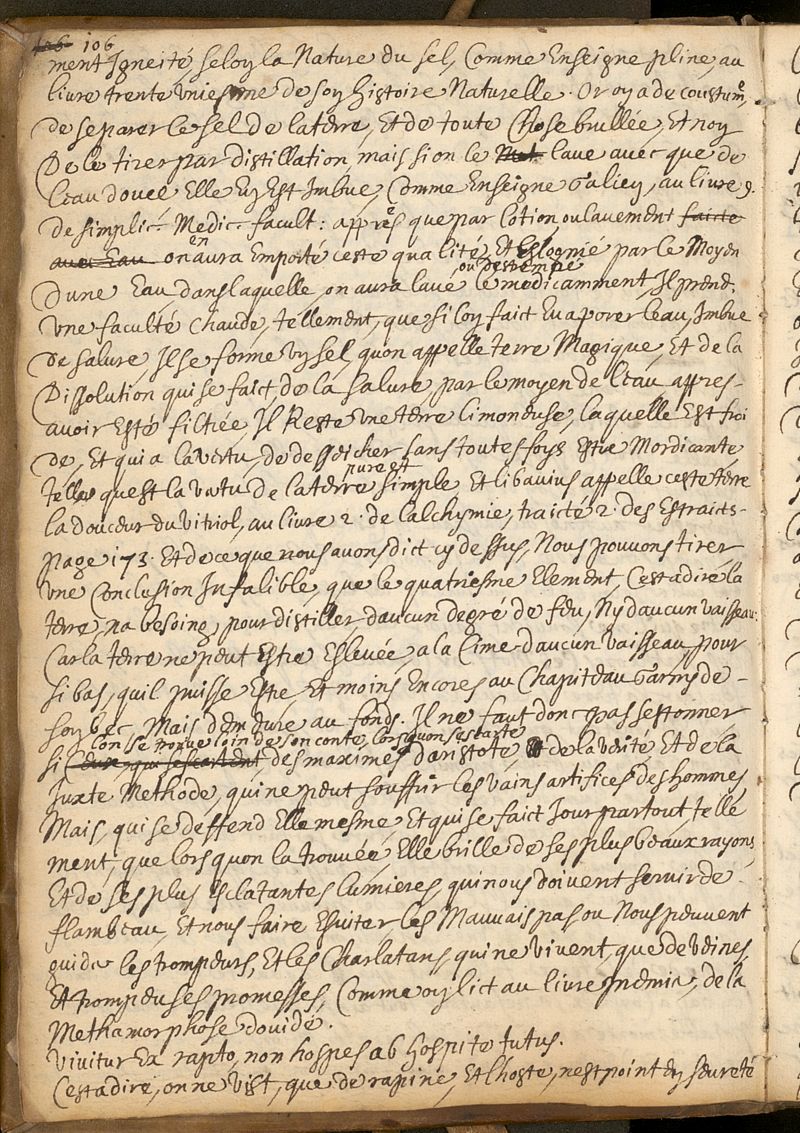 106 106
ment Igneité, seloy la Nature du sel, Comme Enseigne pline, au
livre trente uniesme de soy histoire Naturelle. Or oy a de coustume,
de separer le sel de la terre, Et de toute Chose brullée, Et noy
De le tirer par distillation, mais si on le lave avecque de
leau douce Elle Ey Est Imbue, Comme Enseigne Galiey, au livre 9.
de simplic. Medic. facult: appres que par lotion, ou lavement faicte
avec Eau on en aura Emporté ceste qualité, Et Esloignié par le Moyen
ou destrempé
Dune Eau dans laquelle, on aura lavé le medicamment, Il prend,
une faculté Chaude, tellement, que si loy faict Evaporer leau, Imbue
de salure, Il se forme uy sel, quon appelle terre Magique, Et de la
Dissolution qui se faict, de la salure, par le moyen de leau, appres-
avoir Esté filtrée, Il Reste une terre limoneuse, laquelle Est froi
de, Et qui a la vertu, de desseicher sans toutesfoys Estre Mordicante,
pure est
telle quest la vertu de la terre simple Et libavius appelle ceste terre
la douceur du vitriol, au livre 2. de lalchymie, traicté 2. des Estraicts-
page 173. Et de ce que nous avons dict cy dessus, Nous pouvons tirer
une Conclusion Infalible, que le quatriesme Element, Cestadire la
terre, na besoing, pour distiller daucun degré de feu, Ny daucun vaisseau:
Car la terre ne peut Estre Eslevée, a la Cime daucun vaisseau, pour
si bas, quil puisse Estre, Et moins Encores au Chapiteau Garny de-
soy bec, Mais demeure au fonds. Il ne faut donc pas sestonner
lon se trouve loin de son conte, lorsquon sescarte
si des maximes daristote, de la verité, Et de la
Juxte Methode, qui ne peut souffrir les vains artifices des hommes,
Mais, qui se deffend Elle mesme, Et qui se faict Jour partout, telle
ment, que lors quon la trouvée, Elle brille de ses plus beaux rayons,
Et de ses plus Esclatantes lumieres, qui nous doivent servir de-
flambeau, Et nous faire Esviter les Mauvais pas ou Nous peuvent
guider les trompeurs, Et les Charlatans, qui ne vivent, que de veines,
Et trompeuses promesses, Comme oy lict au livre premier, de la
Methamorphose dovide.
Vivitur Ex rapto, non hospes ab hospite tutus.
Cestadire, on ne vist, que de rapine, Et lhoste, nest point Ey seureté